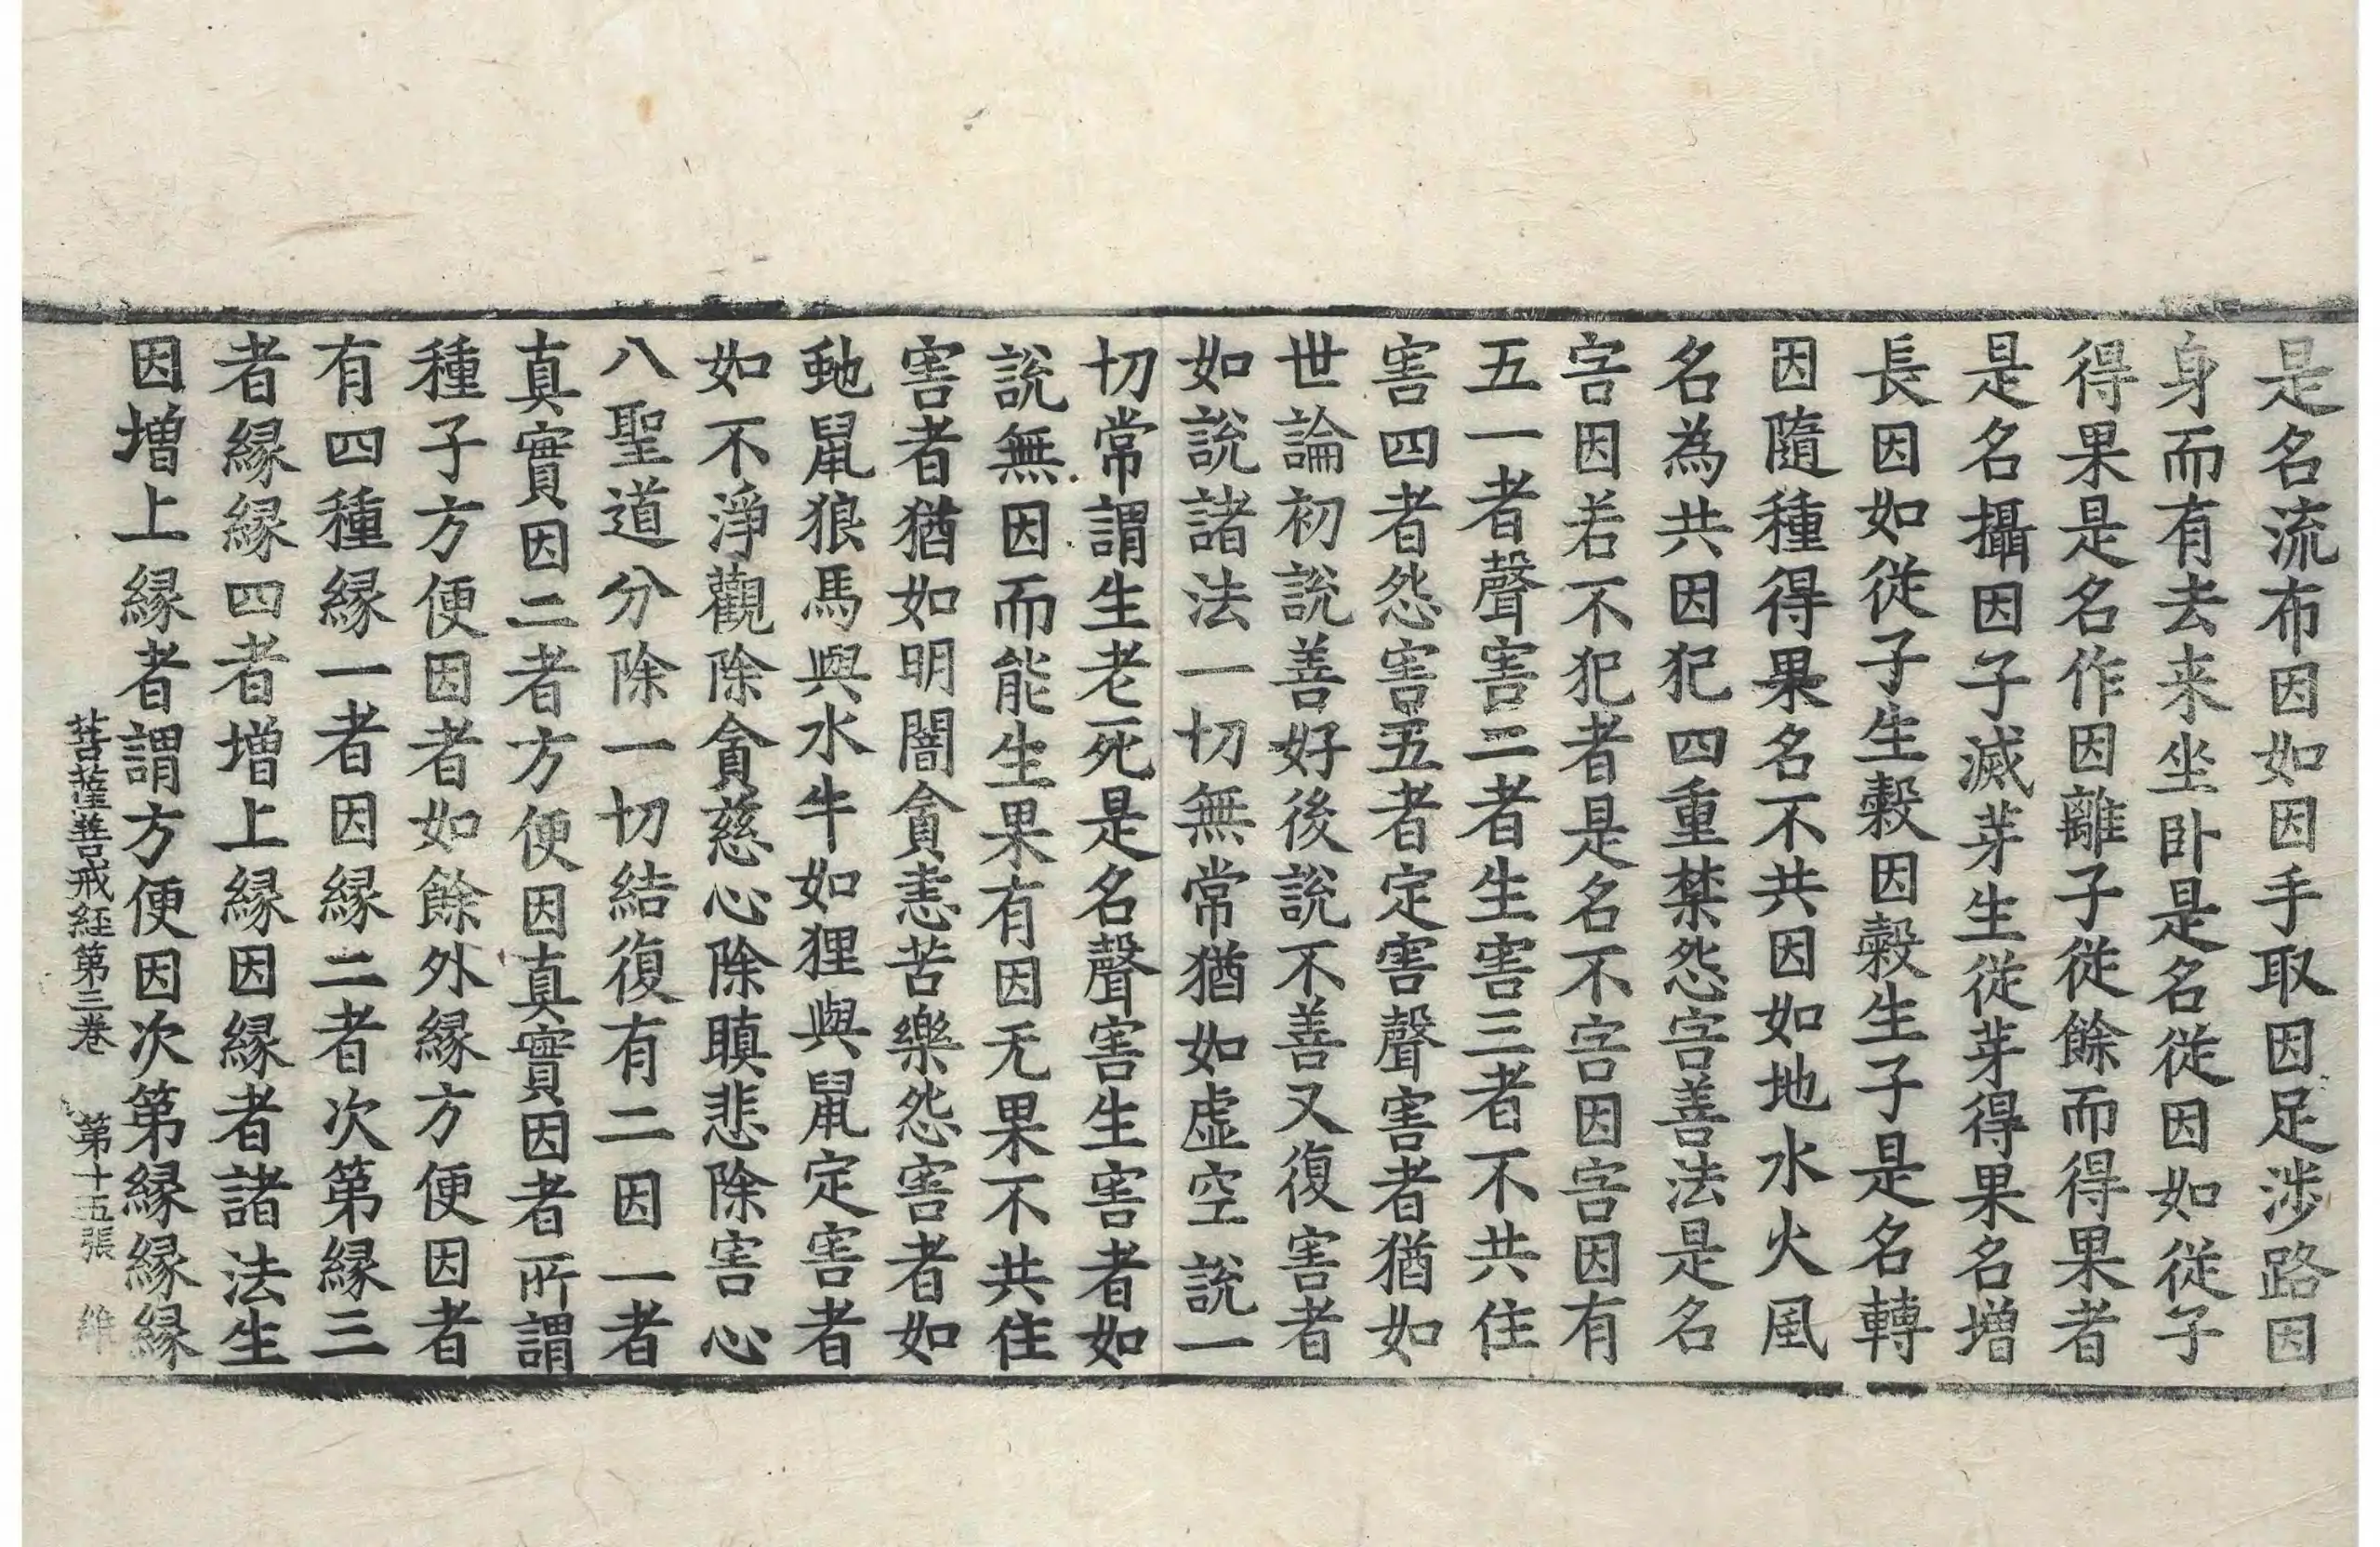 是名流布因如因手取因足涉路因
身而有去来坐卧是名從因如從子
得果是名作因離子從餘而得果者
是名攝因子滅芽生從芽得果名增
長因如從子生穀因穀生子是名轉
因隨種得果名不共因如地水火風
名為共因犯四重禁怨害善法是名
害因若不犯者是名不害因害因有
五一者聲害二者生害三者不共住
害四者怨害五者定害聲害者猶如
世論初說善好後說不善又復害者
如說諸法一切無常猶如虛空說一
切常謂生老死是名聲害生害者如
說無因而能生果有因无果不共住
害者猶如明闇貪恚苦樂怨害者如
虵鼠狼馬與水牛如狸與鼠定害者
如不淨觀除貪慈心除瞋悲除害心
八聖道分除一切結復有二因一者
真實因二者方便因真實因者所謂
種子方便因者如餘外緣方便因者
有四種緣一者因緣二者次第緣三
者緣緣四者增上緣因緣者諸法生
因增上緣者謂方便因次第緣緣緣
菩薩善戒経第三巻　第十五張　維